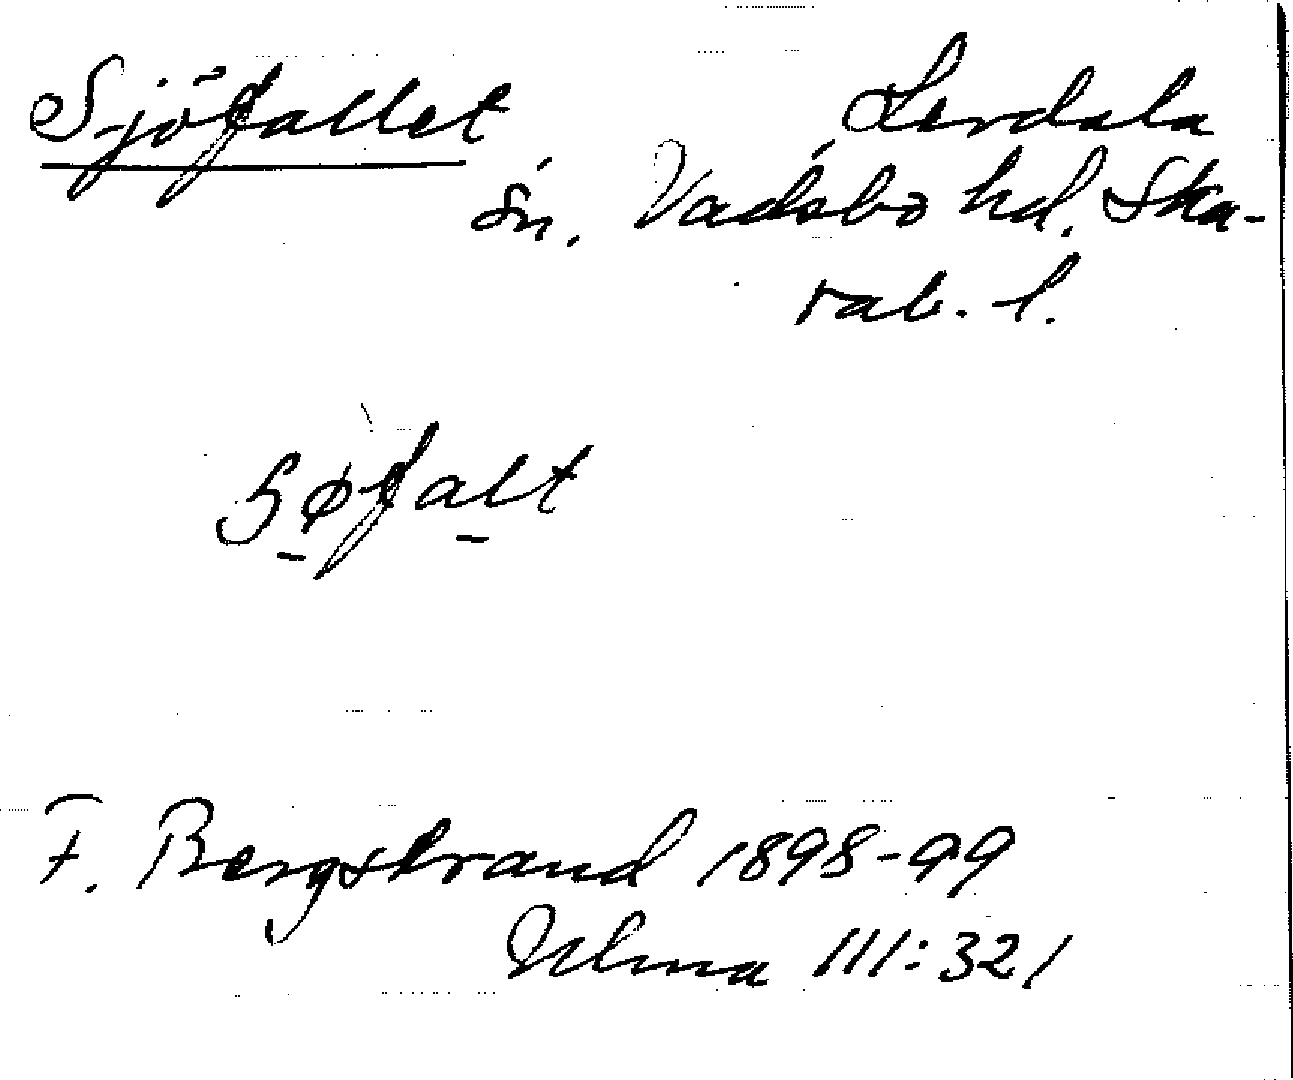 Sjöfallet Lerdala
sn. Vadsbo hd. Ska-
rab. l.
Søfalt
F. Bergstrand 1898-99
Ulma 111:321